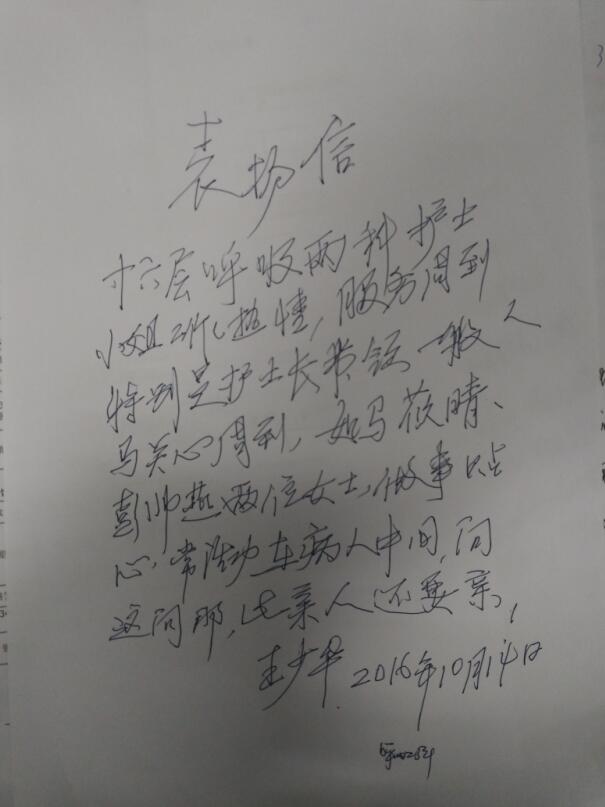 表扬信
十六层呼吸两科护士
小姐工作热情，服务周到
特别是护士长带领一般人
马关心周到，如马莜晴、
彭帅燕两位女士，做事贴
心，常活动在病人中间，问
这问那，比亲人还要亲，
王少华 2016年10月14日